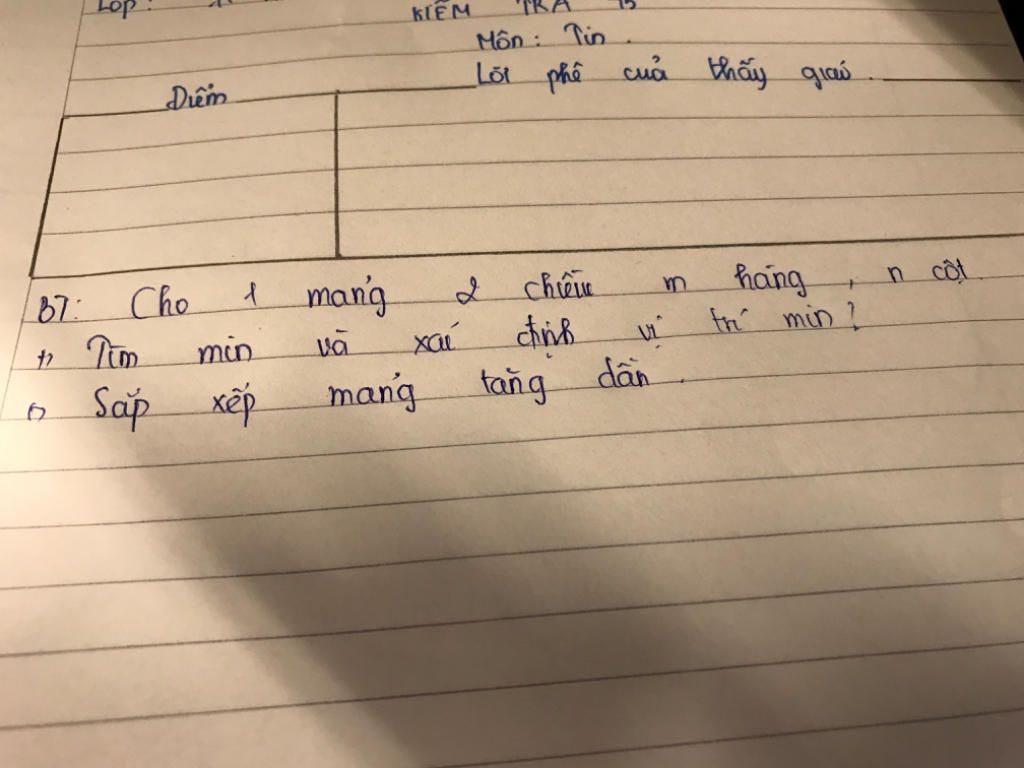 Lớp:
KIỂM TRA 15
Môn: Tin.
Điểm
Lời phê của thầy giáo.
BT: Cho 1 mảng 2 chiều m hàng, n cột.
Tìm min và xác định vị trí min?
Sắp xếp mảng tăng dần.